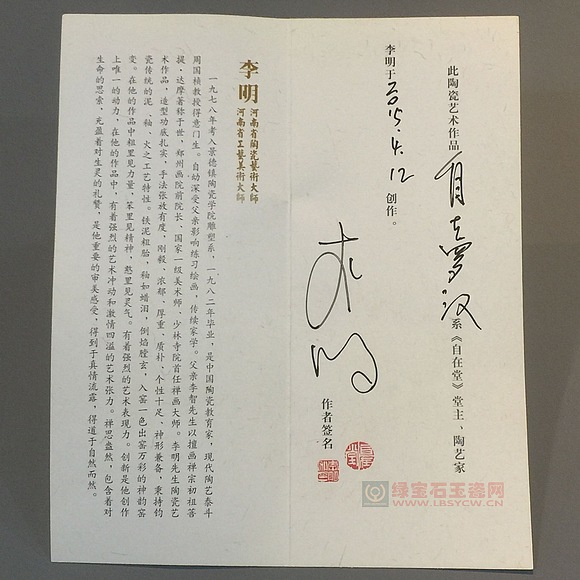 此陶瓷艺术作品自在罗汉系《自在堂》堂主、陶艺家
李明于2015.4.12创作。
李明
作者签名
李明
河南省陶瓷藝術大师
河南省工藝美術大师
一九七八年考入景德镇陶瓷学院雕塑系，一九八二年毕业，是中国陶瓷教育家，现代陶艺泰斗
周国桢教授得意门生。自幼深受父亲影响练习绘画，传续家学。父亲李智先生以擅画禅宗初祖菩
提·达摩著称于世，郑州画院前院长、国家一级美术师、少林寺院首任禅画大师。李明先生陶瓷艺
术作品，造型功底扎实，手法张放有度，刚毅、浓郁、厚重、质朴、个性十足、神形兼备，秉持钧
瓷传统的泥、釉、火之工艺特性。铁泥粗胎，釉如蜡泪，倒焰膛玄，入窑一色出窑万彩的神韵窑
变。在他的作品中粗里见力量，笨里见精神，憨里见灵气。有着强烈的艺术表现力。创新是他创作
上唯一的动力，在他的作品中，有着强烈的艺术冲动和激情四溢的艺术张力。禅思盎然，包含着对
生命的思索，充盈着对生灵的礼赞，是他重要的审美感受，得到于真情流露，得道于自然而然。
绿宝石玉瓷网
WWW.LBSYCW.CN